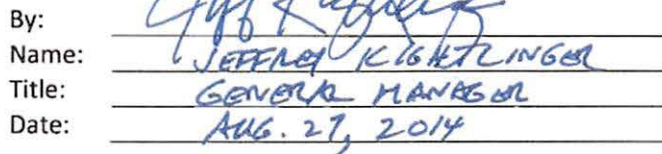 By:
Name: JEFFREY KIGHTLINGER
Title: GENERAL MANAGER
Date: AUG. 27, 2014